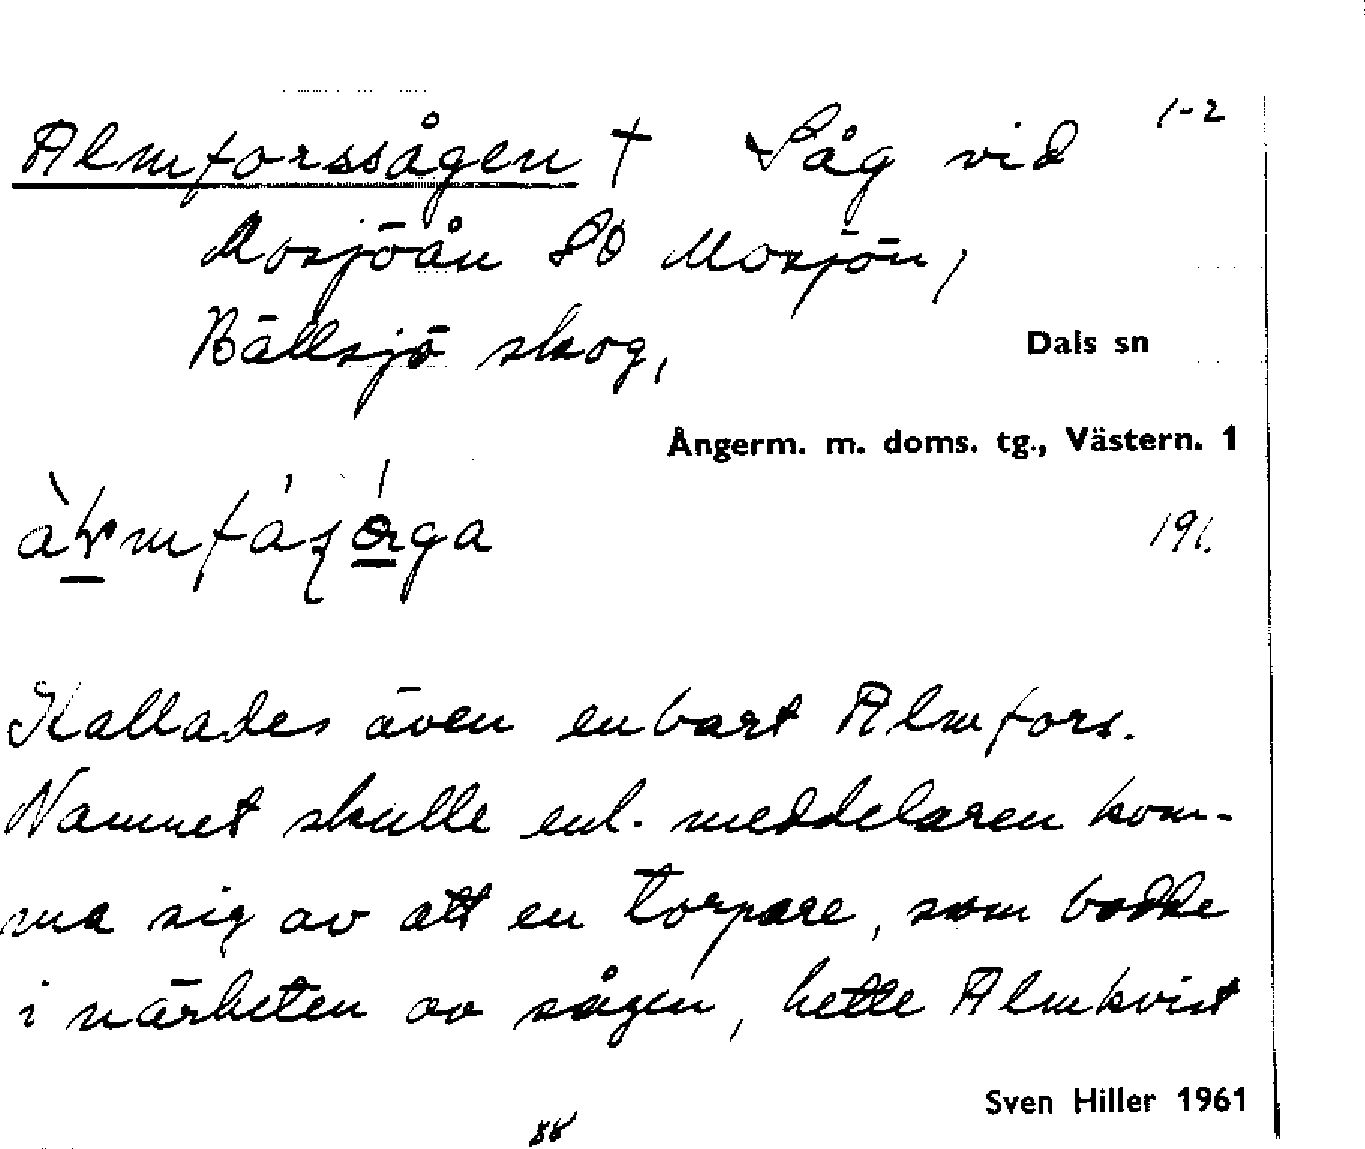 1-2
Almforssågen † Såg vid
Mosjöån SO Mosjön,
Bällsjö skog,
Dals sn
Ångerm. m. doms. tg., Västern. 1
191.
Kallades även enbart Almfors.
Namnet skulle enl. meddelaren kom-
ma sig av att en torpare, som bodde
i närheten av sågen, hette Almkvist
Sven Hiller 1961